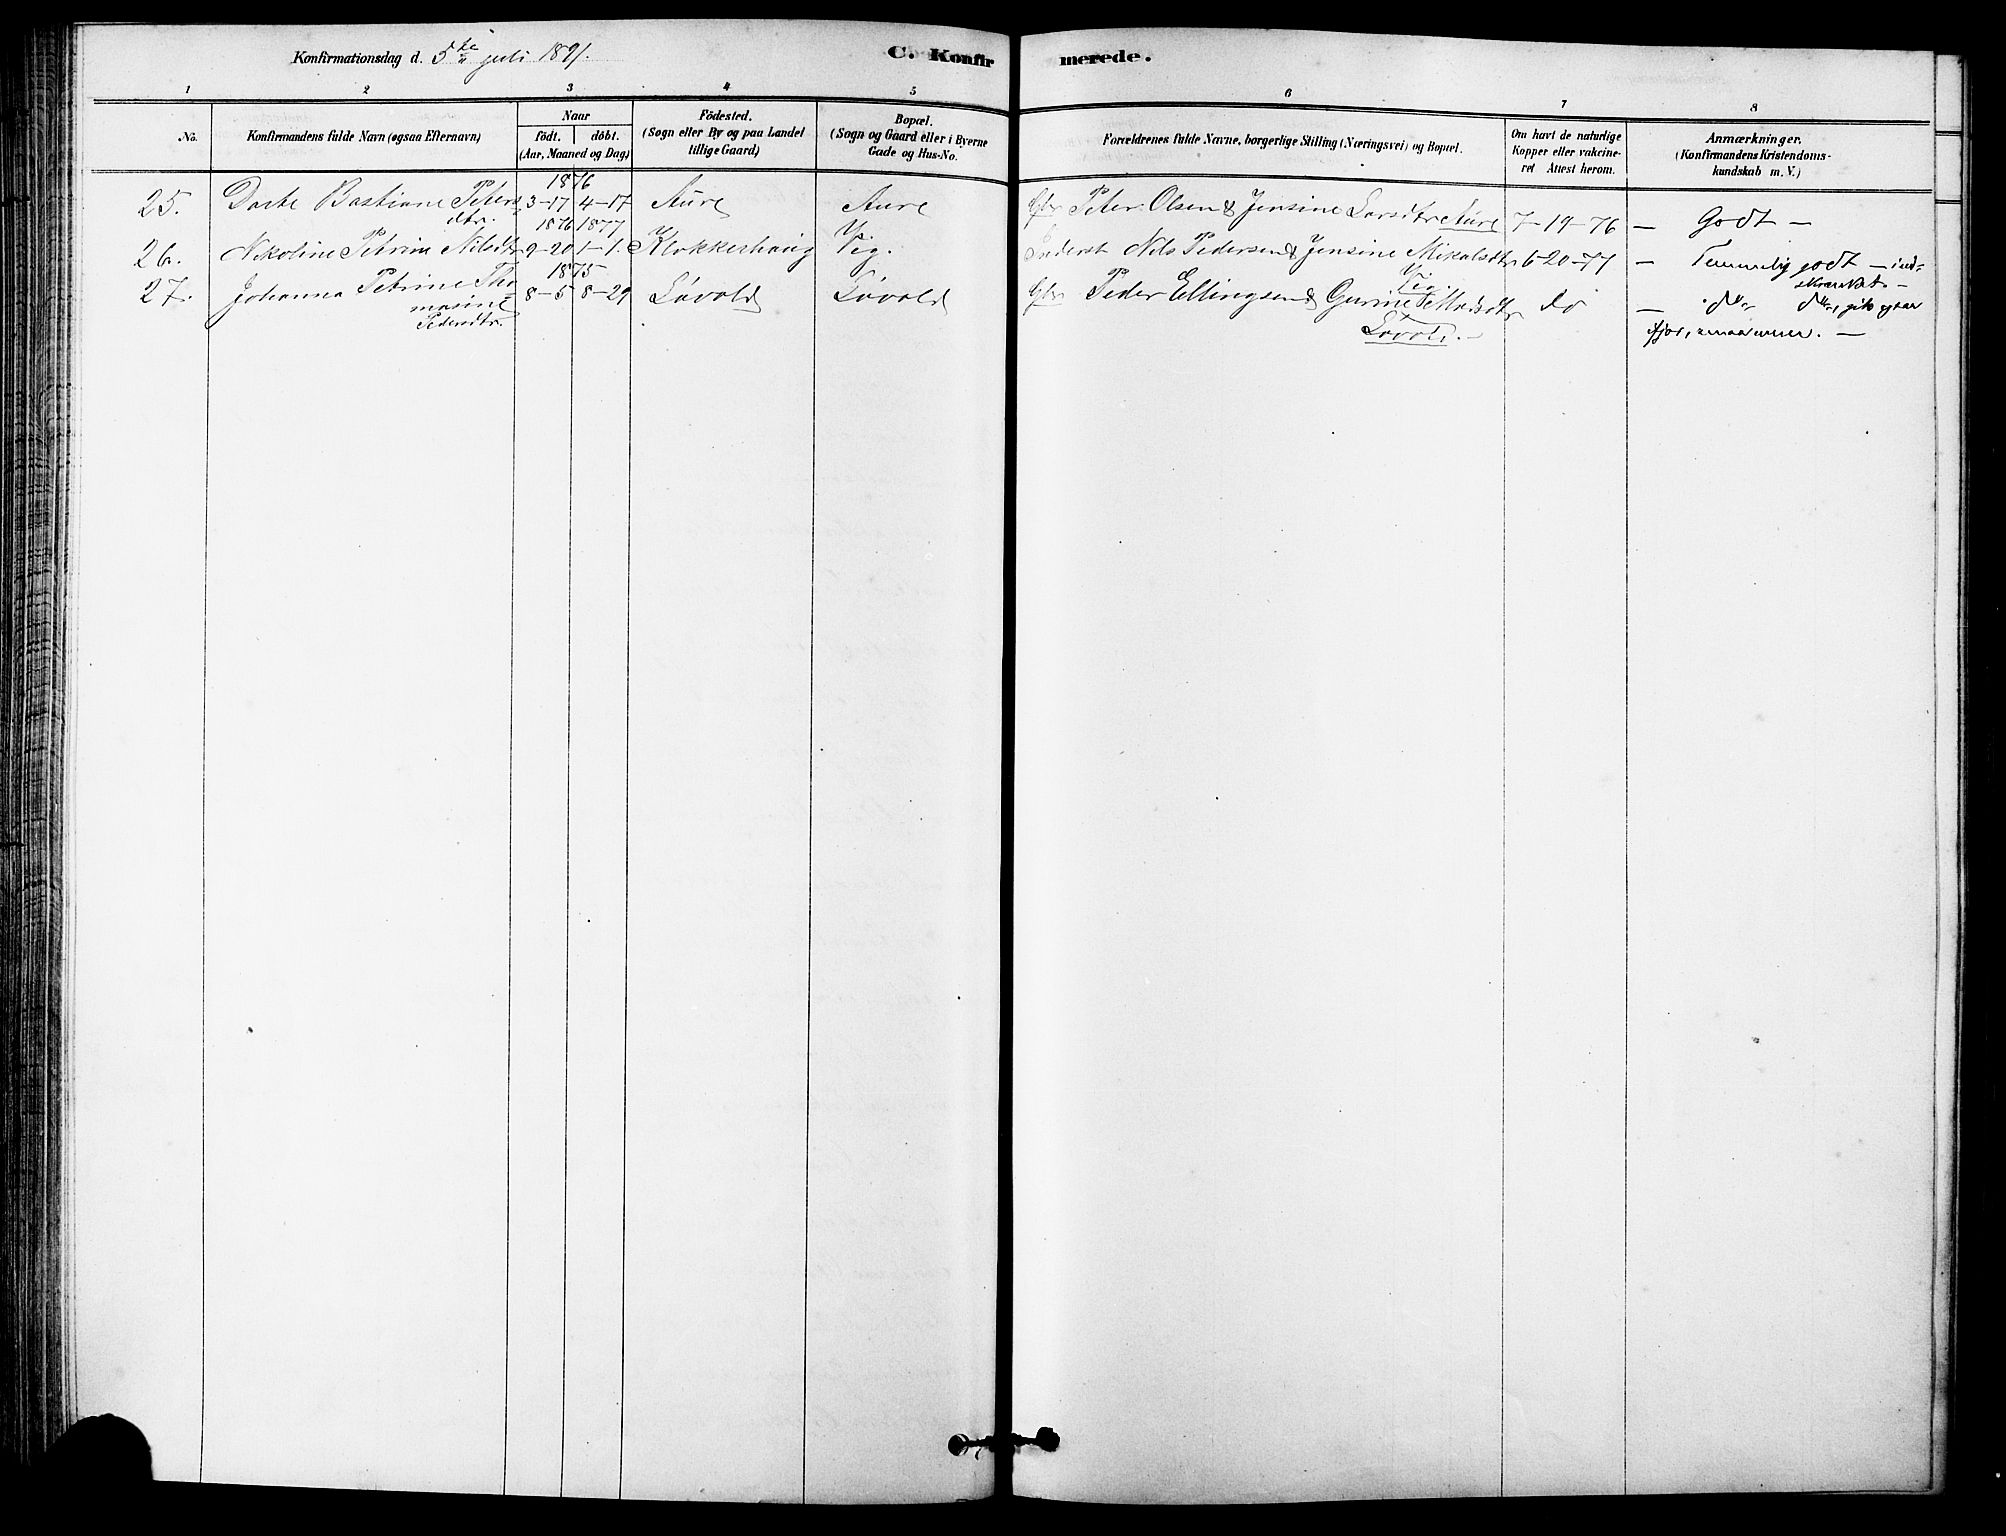 Konfirmationsdag d. 5te juli 1891.
C. Konfirmerede.
1 2 3 4 5 6 7 8
No. Konfirmandens fulde Navn (ogsaa Efternavn) Naar født. døbt. (Aar, Maaned og Dag) Fødested. (Sogn eller By og paa Landet tillige Gaard) Bopæl. (Sogn og Gaard eller i Byerne Gade og Hus-No. Forældrenes fulde Navne, borgerlige Stilling (Næringsvei) og Bopæl. Om havt de naturlige Kopper eller vakcineret Attest herom. Anmærkninger. (Konfirmandens Kristendomskundskab m. V.)
1876
25. Dorte Bastiane Peters 3-17 4-17 Aure Aure Gbr Peter Olsen & Jensine Larsdtr Aure 7-19-76 — Godt —
dtr. 1876 1877
26. Nikoline Petrine Nilsdtr 9-20 1-1. Klokkerhaug Vig. Inderst Nils Pedersen & Jensine Mikalsdtr 6-20-77 — Temmelig godt — ind-
1875 Vig. skrænket. —
27. Johanna Petrine Tho 8-5 8-29 Løvold Løvold Gbr Peder Ellingsen & Gurine Madsdtr do — do do, gik
masine Løvold. — ifjor,
Pedersdtr.